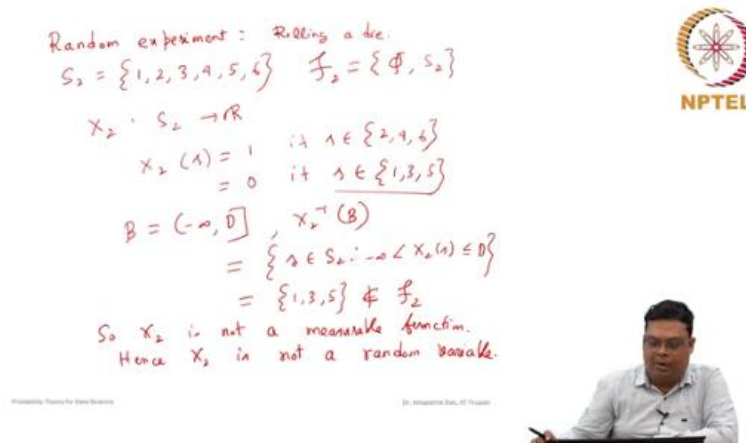 Random experiment: Rolling a die.
S₂ = {1, 2, 3, 4, 5, 6} f₂ = {Φ, S₂}
X₂ : S₂ → ℝ
X₂ (s) = 1 if s ∈ {2, 4, 6}
= 0 if s ∈ {1, 3, 5}
B = (-∞, 0] , X₂⁻¹ (B)
= {s ∈ S₂ : -∞ < X₂(s) ≤ 0}
= {1, 3, 5} ∉ f₂
So X₂ is not a measurable function.
Hence X₂ is not a random variable.
NPTEL
Probability Theory for Data Science